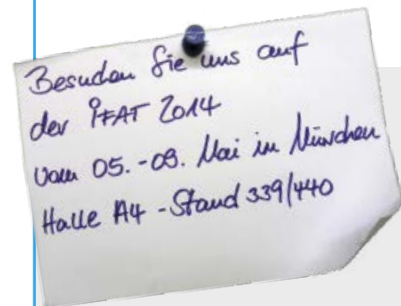 Besuchen Sie uns auf
der IFAT 2014
vom 05. - 09. Mai in München
Halle A4 - Stand 339/440